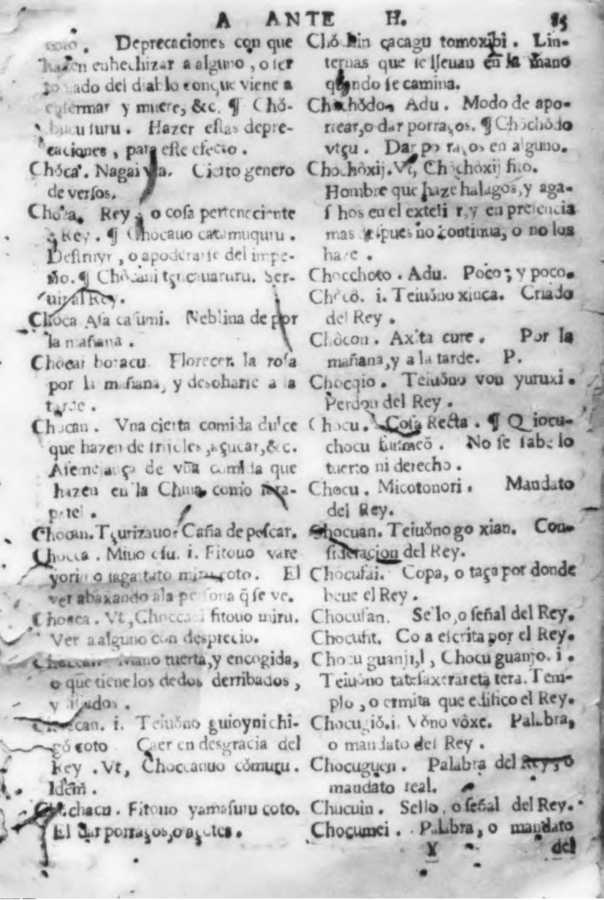 A ANTE H. 85
coto. Deprecaciones con que
hazen enhechizar a alguno, o ser
tomado del diablo conque viene a
enfermar y muere, &c. ¶ Chó-
bucu suru. Hazer estas depre-
caciones, para este efecto.
Chóca. Nagai Vta. Cierto genero
de versos.
Rey, o cosa perteneciente
a Rey. ¶ Chocauo catamuquru.
Destruyr, o apoderarse del impe-
rio. ¶
uir al Rey.
Choca Asa casumi. Neblina de por
la mañana.
Chocar botacu. Florecer la rosa
por la mañana, y desojarse a la
tarde.
Chocan. Vna cierta comida dulce
que hazen de frijoles, açucar, &c.
Asemejança de vna comida que
hazen en la China, como
Chocan. Tçurizauo. Caña de pescar.
Chocca. Mino csu. i. Fitouo vare
yorimo saga tato miru coto. El
ver abaxando a la persona q̃ se ve.
Chocca. Vt, Choccaxi fitouo miru.
Ver a alguno con desprecio.
Mano tuerta, y encogida,
o que tiene los dedos derribados,
y
i. Teiuǒno guioyni chi-
gǒ coto Caer en desgracia del
Rey. Vt, Choccanuo cǒmuru.
Idem.
Chochacu. Fitouo yamasuru coto.
El dar porraços, o açotes.
Chóchin çacagu tomoxibi. Lin-
ternas que se lleuan en la mano
quando se camina.
Chochǒdo. Adu. Modo de apo-
rrear, o dar porraços. ¶ Chochǒdo
vtçu. Dar porraços en alguno.
Chochǒxij. Vt, Chochǒxij fito.
Hombre que haze halagos, y aga-
sajos en el exterior, y en presencia
mas despues no continua, o no los
haze.
Chocchoto. Adu. Poco, y poco.
Chǒcǒ. i. Teiuǒno xinca. Criado
del Rey.
Chǒcon. Axita cure. Por la
mañana, y a la tarde. P.
Chocqio. Teiuǒno von yuruxi.
Perdon del Rey.
Chocu. Cosa Recta. ¶ Qiocu-
chocu No se sabe lo
tuerto ni derecho.
Chocu. Micotonori. Mandato
del Rey.
Chocuan. Teiuǒno go xian. Con-
sideracion del Rey.
Chocufai. Copa, o taça por donde
beue el Rey.
Chocufan. Sello, o señal del Rey.
Chocufit. Cosa escrita por el Rey.
Chocu guanji, l, Chocu guanjo. i.
Teiuǒno tatesaxerareta tera. Tem-
plo, o ermita que edifico el Rey.
Chocugiǒ. i. Vǒno vôxe. Palabra,
o mandato del Rey.
Chocuguen. Palabra del Rey, o
mandato real.
Chucuin. Sello, o señal del Rey.
Chocumei. Palabra, o mandato
Y del